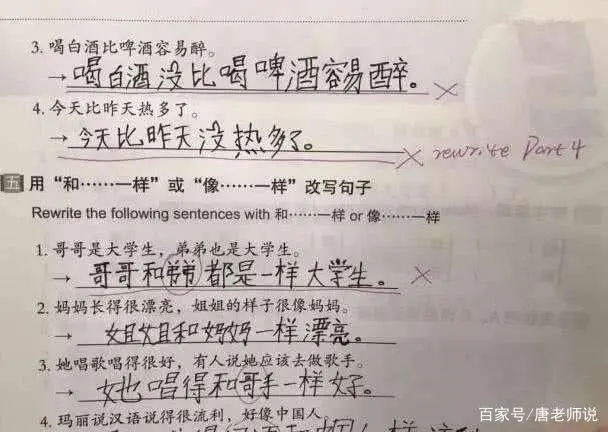 3. 喝白酒比啤酒容易醉。
→ 喝白酒没比喝啤酒容易醉。
4. 今天比昨天热多了。
→ 今天比昨天没热多了。 rewrite Part 4
五 用“和……一样”或“像……一样”改写句子
Rewrite the following sentences with 和……一样 or 像……一样
1. 哥哥是大学生，弟弟也是大学生。
→ 哥哥和弟弟都是一样大学生。
2. 妈妈长得很漂亮，姐姐的样子很像妈妈。
→ 姐姐和妈妈一样漂亮。
3. 她唱歌唱得很好，有人说她应该去做歌手。
→ 她唱得和哥手一样好。
4. 玛丽说汉语说得很流利，好像中国人
百家号/唐老师说